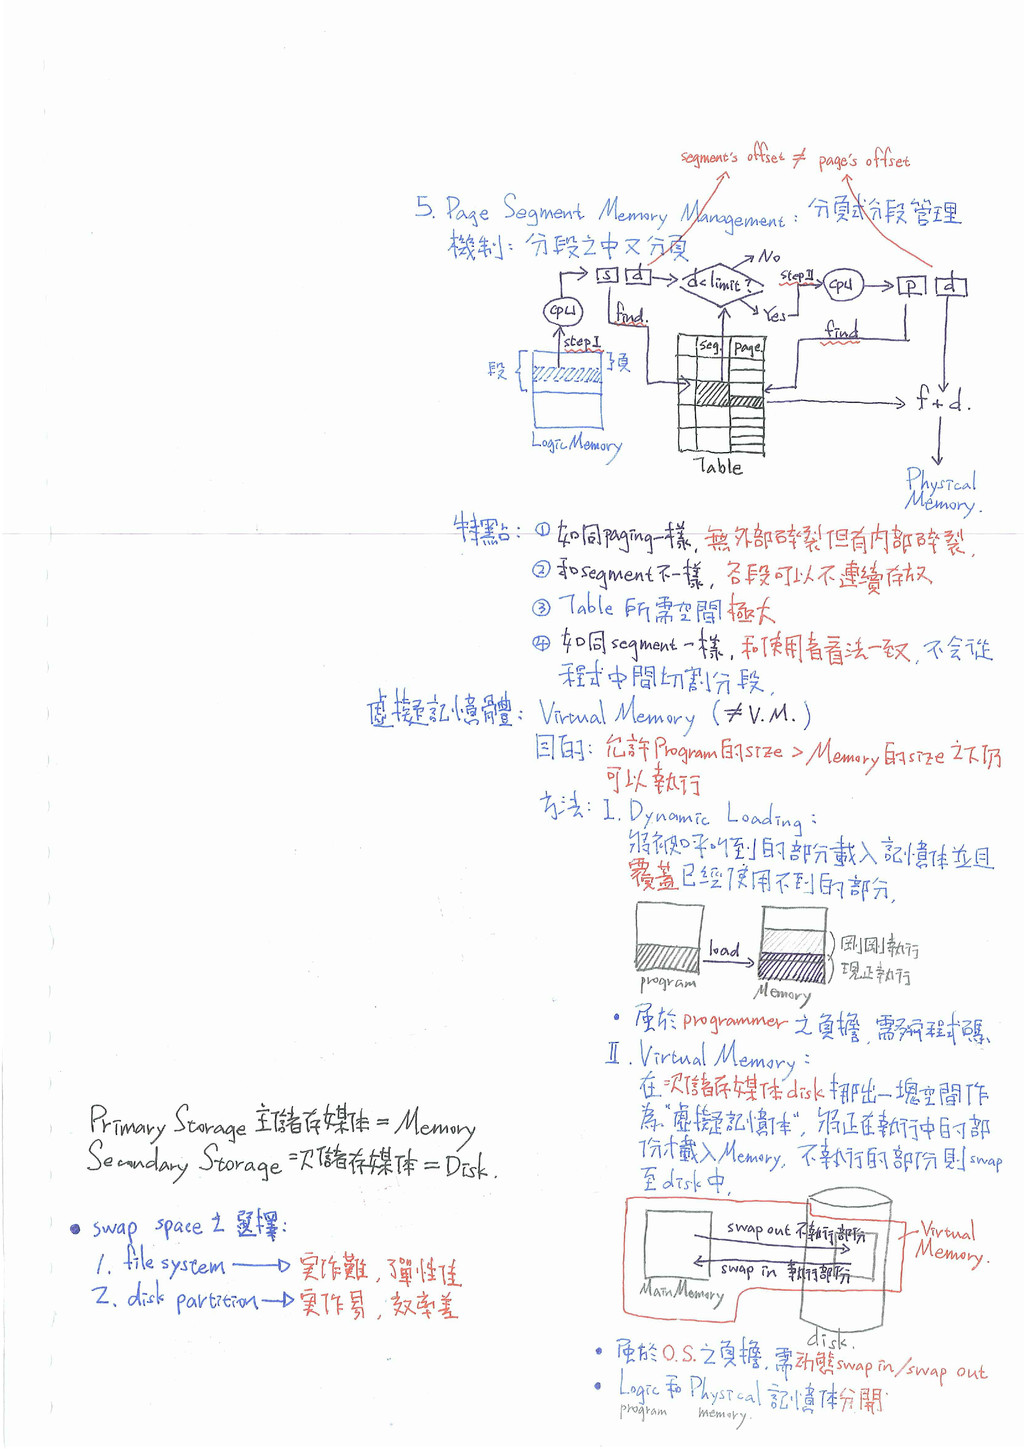 segment's offset ≠ page's offset
5. Page Segment Memory Management: 分頁式分段管理
機制: 分段之中又分頁
No
s d
d<limit?
step II
CPU
p d
CPU
find.
Yes
find
step I
seg. page.
段
頁
f + d.
Logic Memory
Table
Physical
Memory.
特點: ① 如同paging一樣, 無外部碎裂但有內部碎裂,
② 和segment不一樣, 各段可以不連續存放
③ Table 所需空間極大
④ 如同segment一樣, 和使用者看法一致, 不会從
程式中間切割分段,
虛擬記憶體: Virtual Memory (≠V.M.)
目的: 允許Program的size > Memory的size之下仍
可以執行
方法: I. Dynamic Loading:
將被呼叫到的部份載入記憶体並且
覆蓋已經使用不到的部分,
load
剛剛執行
現正執行
program
Memory
• 屬於programmer之負擔, 需函程式碼
II. Virtual Memory:
在次儲存媒体disk挪出一塊空間作
為"虛擬記憶体", 將正在執行中的部
份才載入Memory, 不執行的部份則swap
至disk中,
Primary Storage 主儲存媒体 = Memory
Secondary Storage 次儲存媒体 = Disk.
• swap space之選擇:
1. file system → 実作難, 彈性佳
2. disk partition → 実作易, 效率差
swap out 不執行部份
swap in 執行部份
Virtual
Memory.
Main Memory
disk.
• 屬於O.S.之負擔, 需动態swap in/swap out
• Logic 和 Physical 記憶体分開
program memory.